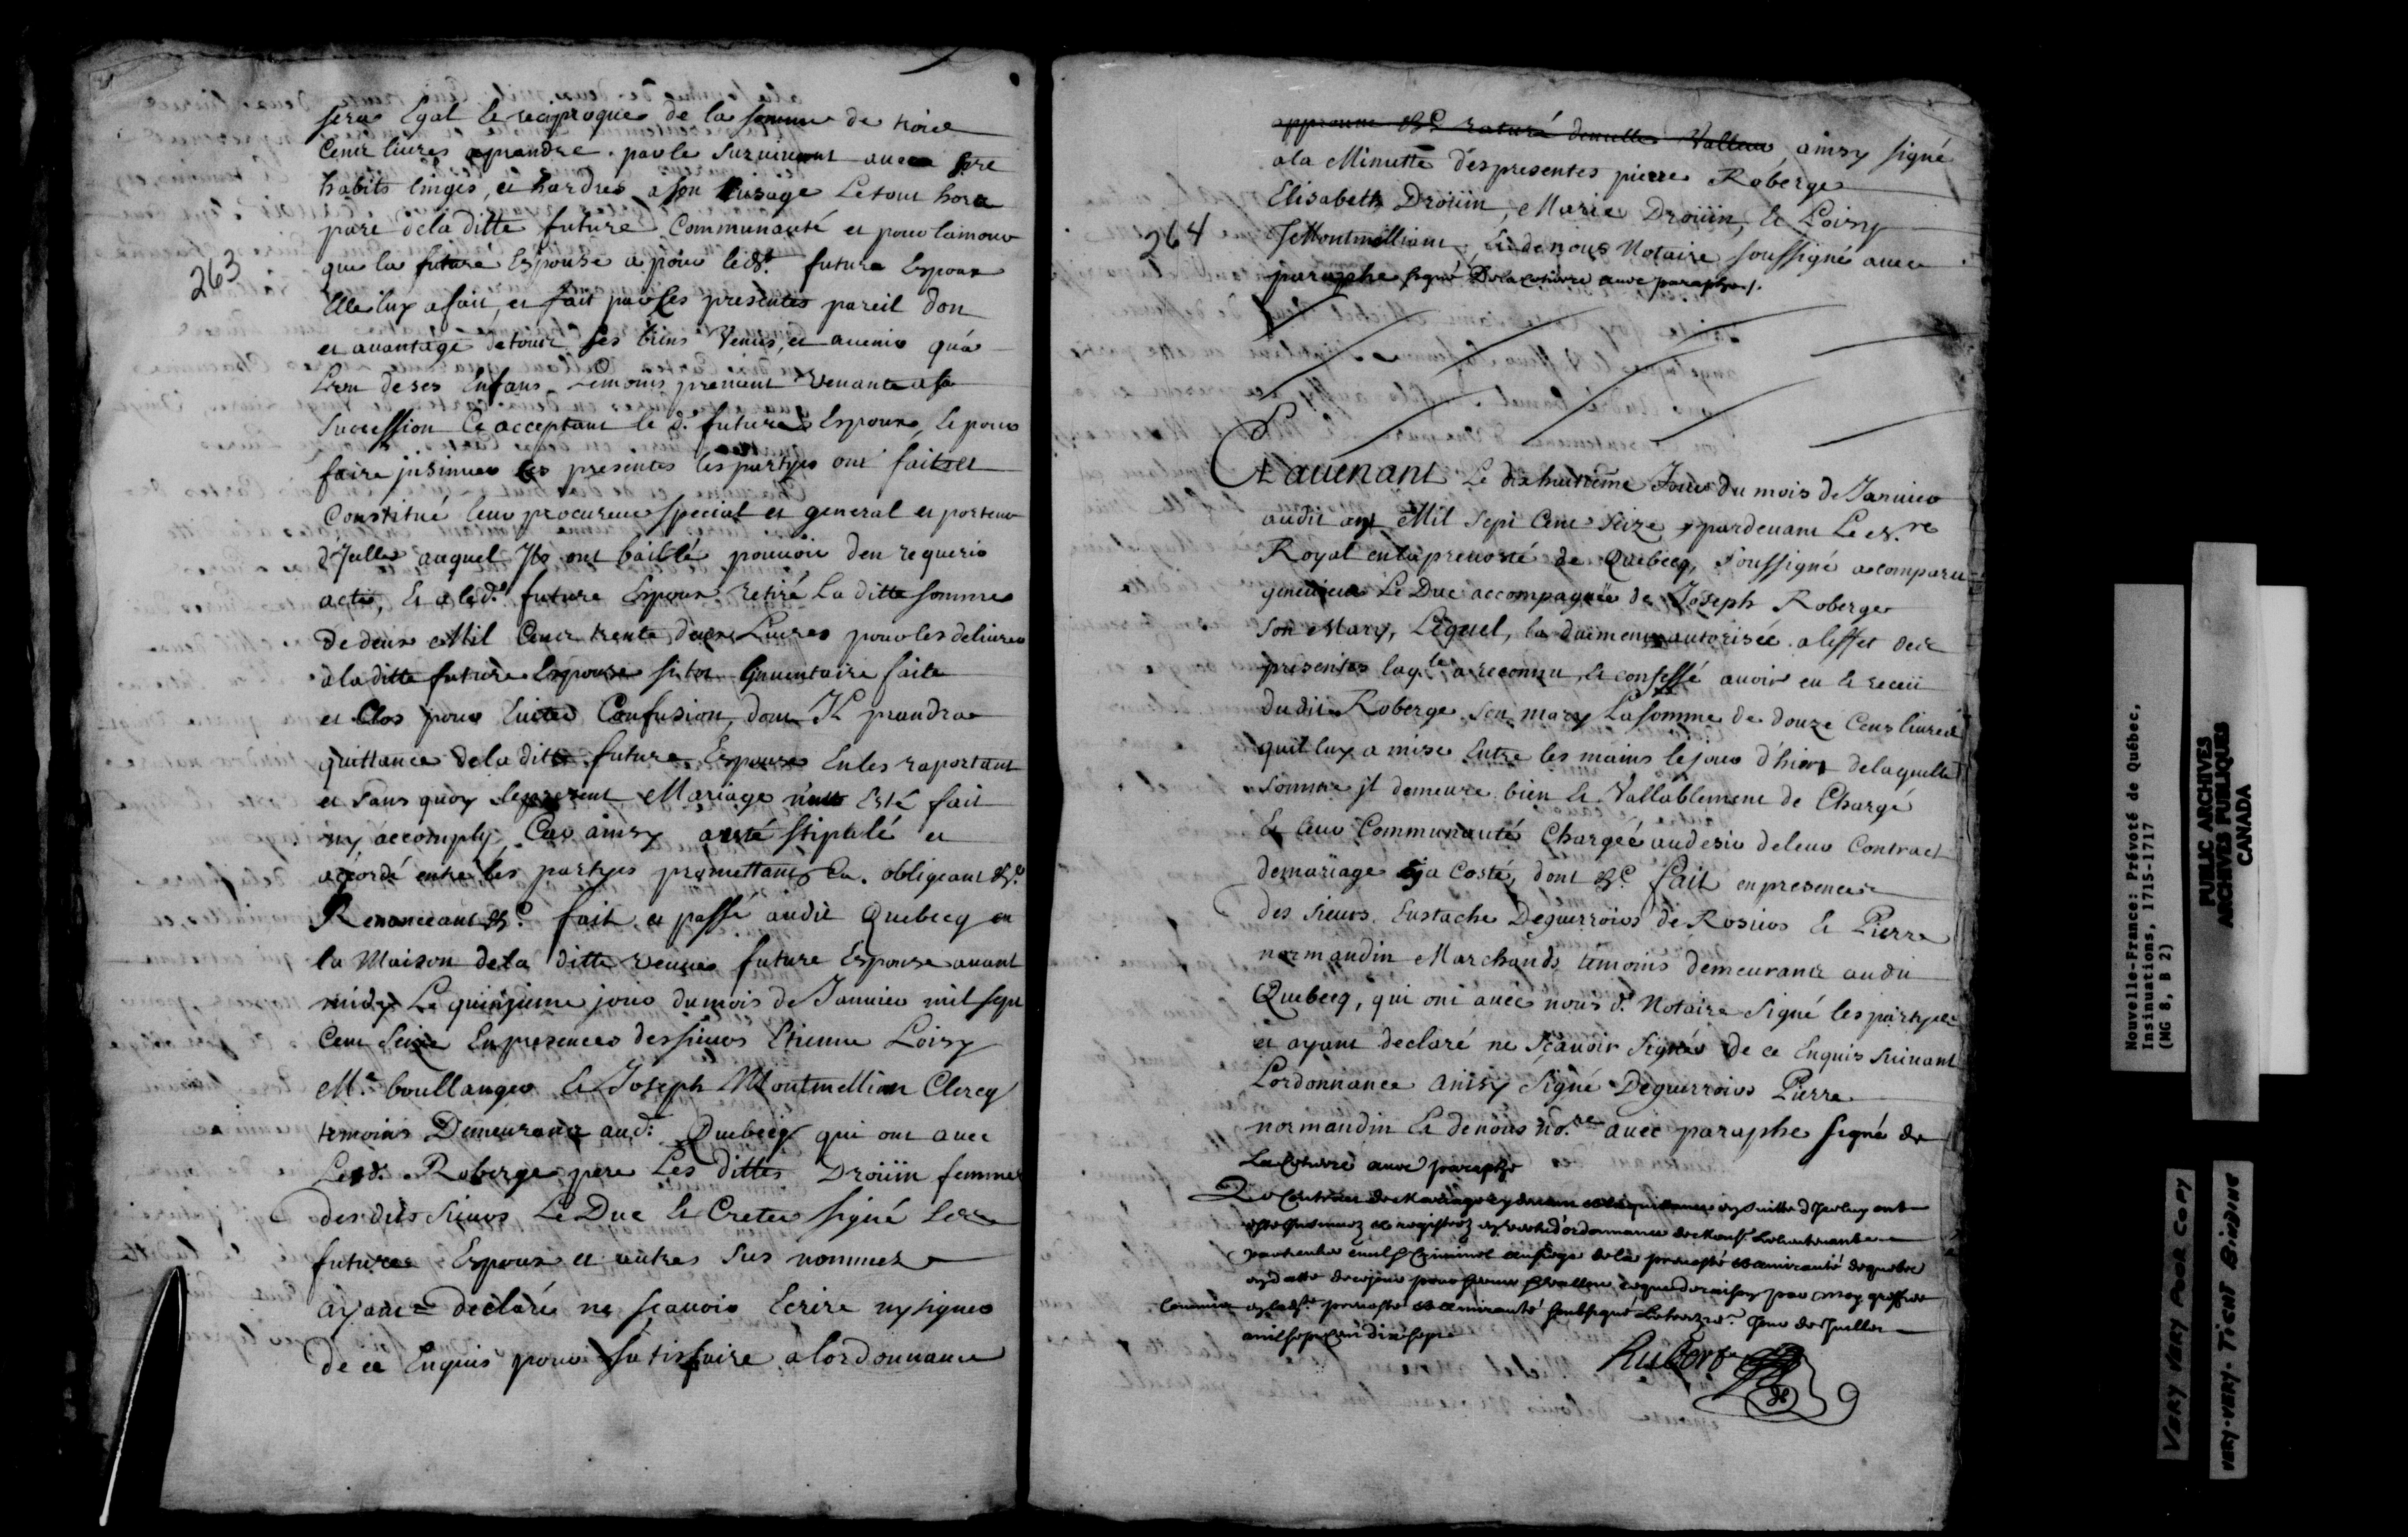 sera Egal et reciproque de la somme de trois
Cens livres a prendre par le survivant avec ses
habits linges, et hardes a son Usage Le tout hors
part de la ditte future Communauté et pour lamour
263
que la future Espouse a pour led.t futur Espoux
Elle luy a fait, et fait par les presentes pareil don
et avantage de tous ses biens Venus, et avenir qu'a
Lun de ses Enfans Lemoins prenant Venant a sa
Succession Ce acceptant le d.t futur Espoux, Et pour
faire jnsinuer les presentes les partyes ont fait et
Constitué leur procureur special et general et porteur
d'Jcelles auquel Jls ont baillé pouvoir den requerir
acte, Et a led.t futur Espoux retiré La ditte somme
De deux Mil Cens trente deux Livres pour les delivrer
a la ditte future Espouse sitot Jnventaire faite
et Clos pour Eviter Confusion, dont Jl prandra
quittance de la ditte future Espouse En les raportant
et sans quoy le present Mariage neut Esté fait
ny accomply, Car ainsy a esté stipulé et
accordé entre les partyes promettans &a. obligeant &c.
Renonceant &c. fait et passé audit Quebecq en
la Maison de la ditte veuve future Espouse avant
midy Le quinzieme jour du mois de Janvier mil sept
Cent Seize En presences des sieurs Etienne Loizy
M.e boullanger Et Joseph Montmellian Clercq
temoins Demeurans aud.t Quebecq qui ont avec
Led.t Roberge pere Les dittes Droüin femmes
desdits Sieurs Le Duc Et Crete signé Les
futures Espoux et autres sus nommez
ayant declaré ne sçavoir Ecrire ny signer
de ce Enquis pour satisfaire a lordonnance
approuvé &c. raturé de nulle Valleur, ainsy signé
a la Minutte des presentes pierre Roberge
Elisabeth Droüin, Marie Droüin, Et Loizy
264
J Montmelliant, Et de nous Notaire soussigné avec
paraphe signé De la Cetiere avec paraphe /.
Et avenant Le dix huitieme Jour du mois de Janvier
audit an Mil Sept Cent Seize, pardevant Le N.re
Royal en la prevosté de Quebecq, soussigné a comparu
genevieve Le Duc accompagnée de Joseph Roberge
Son Mary, Lequel, la duement autorisée a leffet des
presentes laq.le a reconnu, Et confessé avoir eu Et receü
dudit Roberge son mary La somme de douze Cens livres
quil luy a mise Entre les mains le jour d'hier de laquelle
somme jl demeure bien Et Vallablement de Chargé
Et leur Communauté Chargée au desir de leur Contract
de mariage Cy a Costé, dont &c. fait en presence
des Sieurs Eustache Deguerrois de Rosiers Et Pierre
normandin Marchands, temoins demeurans audit
Quebecq, qui ont avec nous d.t Notaire Signé les partyes
et ayant declaré ne Sçavoir Signer de ce Enquis suivant
Lordonnance ainsy Signé Deguerrois Pierre
normandin Et de nous no.re avec paraphe signé de
La Cetiere avec paraphe
Le Contract de Mariage cy devant et la quittance en suitte d'Jceluy ont
esté Jnsinuez et registrez en vertu d'ordonnance de Mons.r Le Lieutenant
particulier civil et Criminel au siege de la prevosté et amirauté de quebec
en datte de ce jour pour servir et valloir ce que de raison par moy greffier
Commis en lad.te prevosté et amirauté soubsigné Le Jour de Juillet
mil sept Cent dix sept
Rivberf
Nouvelle-France: Prévoté de Québec,
Insinuations, 1715-1717
(MG 8, B 2)
PUBLIC ARCHIVES
ARCHIVES PUBLIQUES
CANADA
VERY VERY POOR COPY
VERY-VERY-TIGHT BINDING